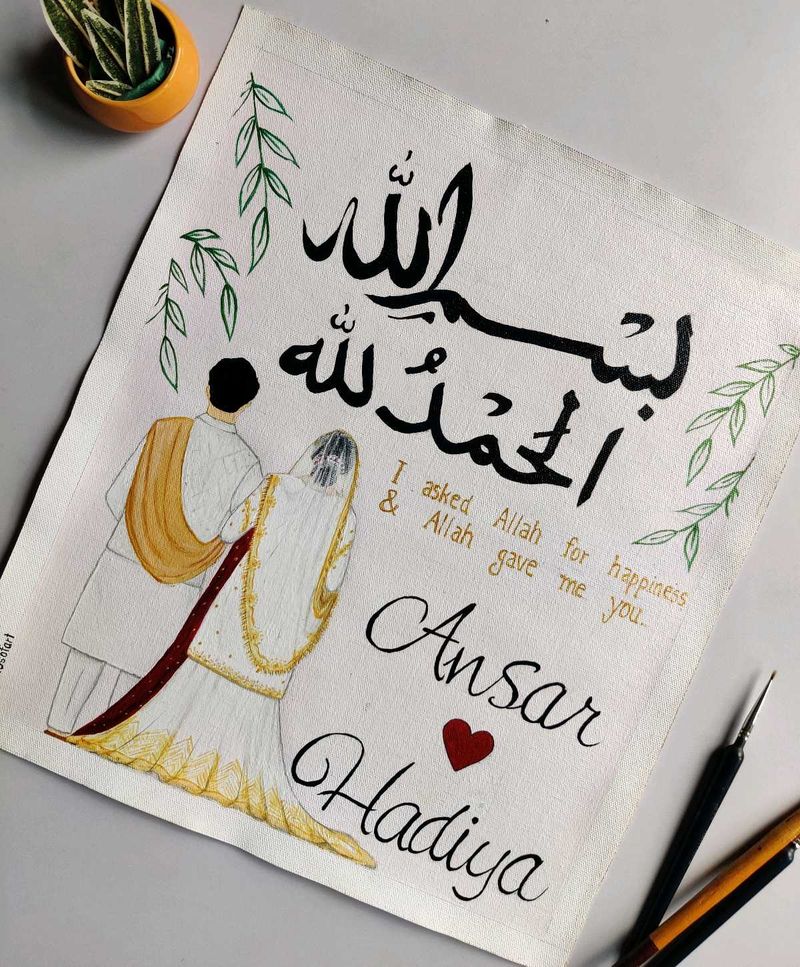 بسم الله
الحمدُ لله
I asked Allah for happiness
& Allah gave me you..
Ansar
Hadiya